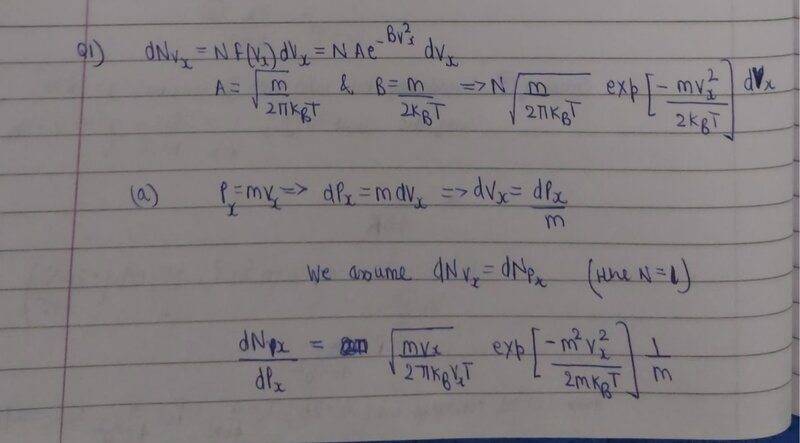 Q1) dN_{Vx} = N f(Vx) dVx = N A e^{-Bv_x^2} dVx
A = √(m/2πk_BT) & B = m/2k_BT => N √(m/2πk_BT) exp[-mv_x^2/2k_BT] dVx
(a) P_x = mV_x => dP_x = m dV_x => dV_x = dP_x/m
We assume dN_{Vx} = dN_{Px} (Here N=1)
dN_{Px}/dP_x = √(mv_x/2πk_Bv_xT) exp[-m^2 v_x^2/2mk_BT] 1/m